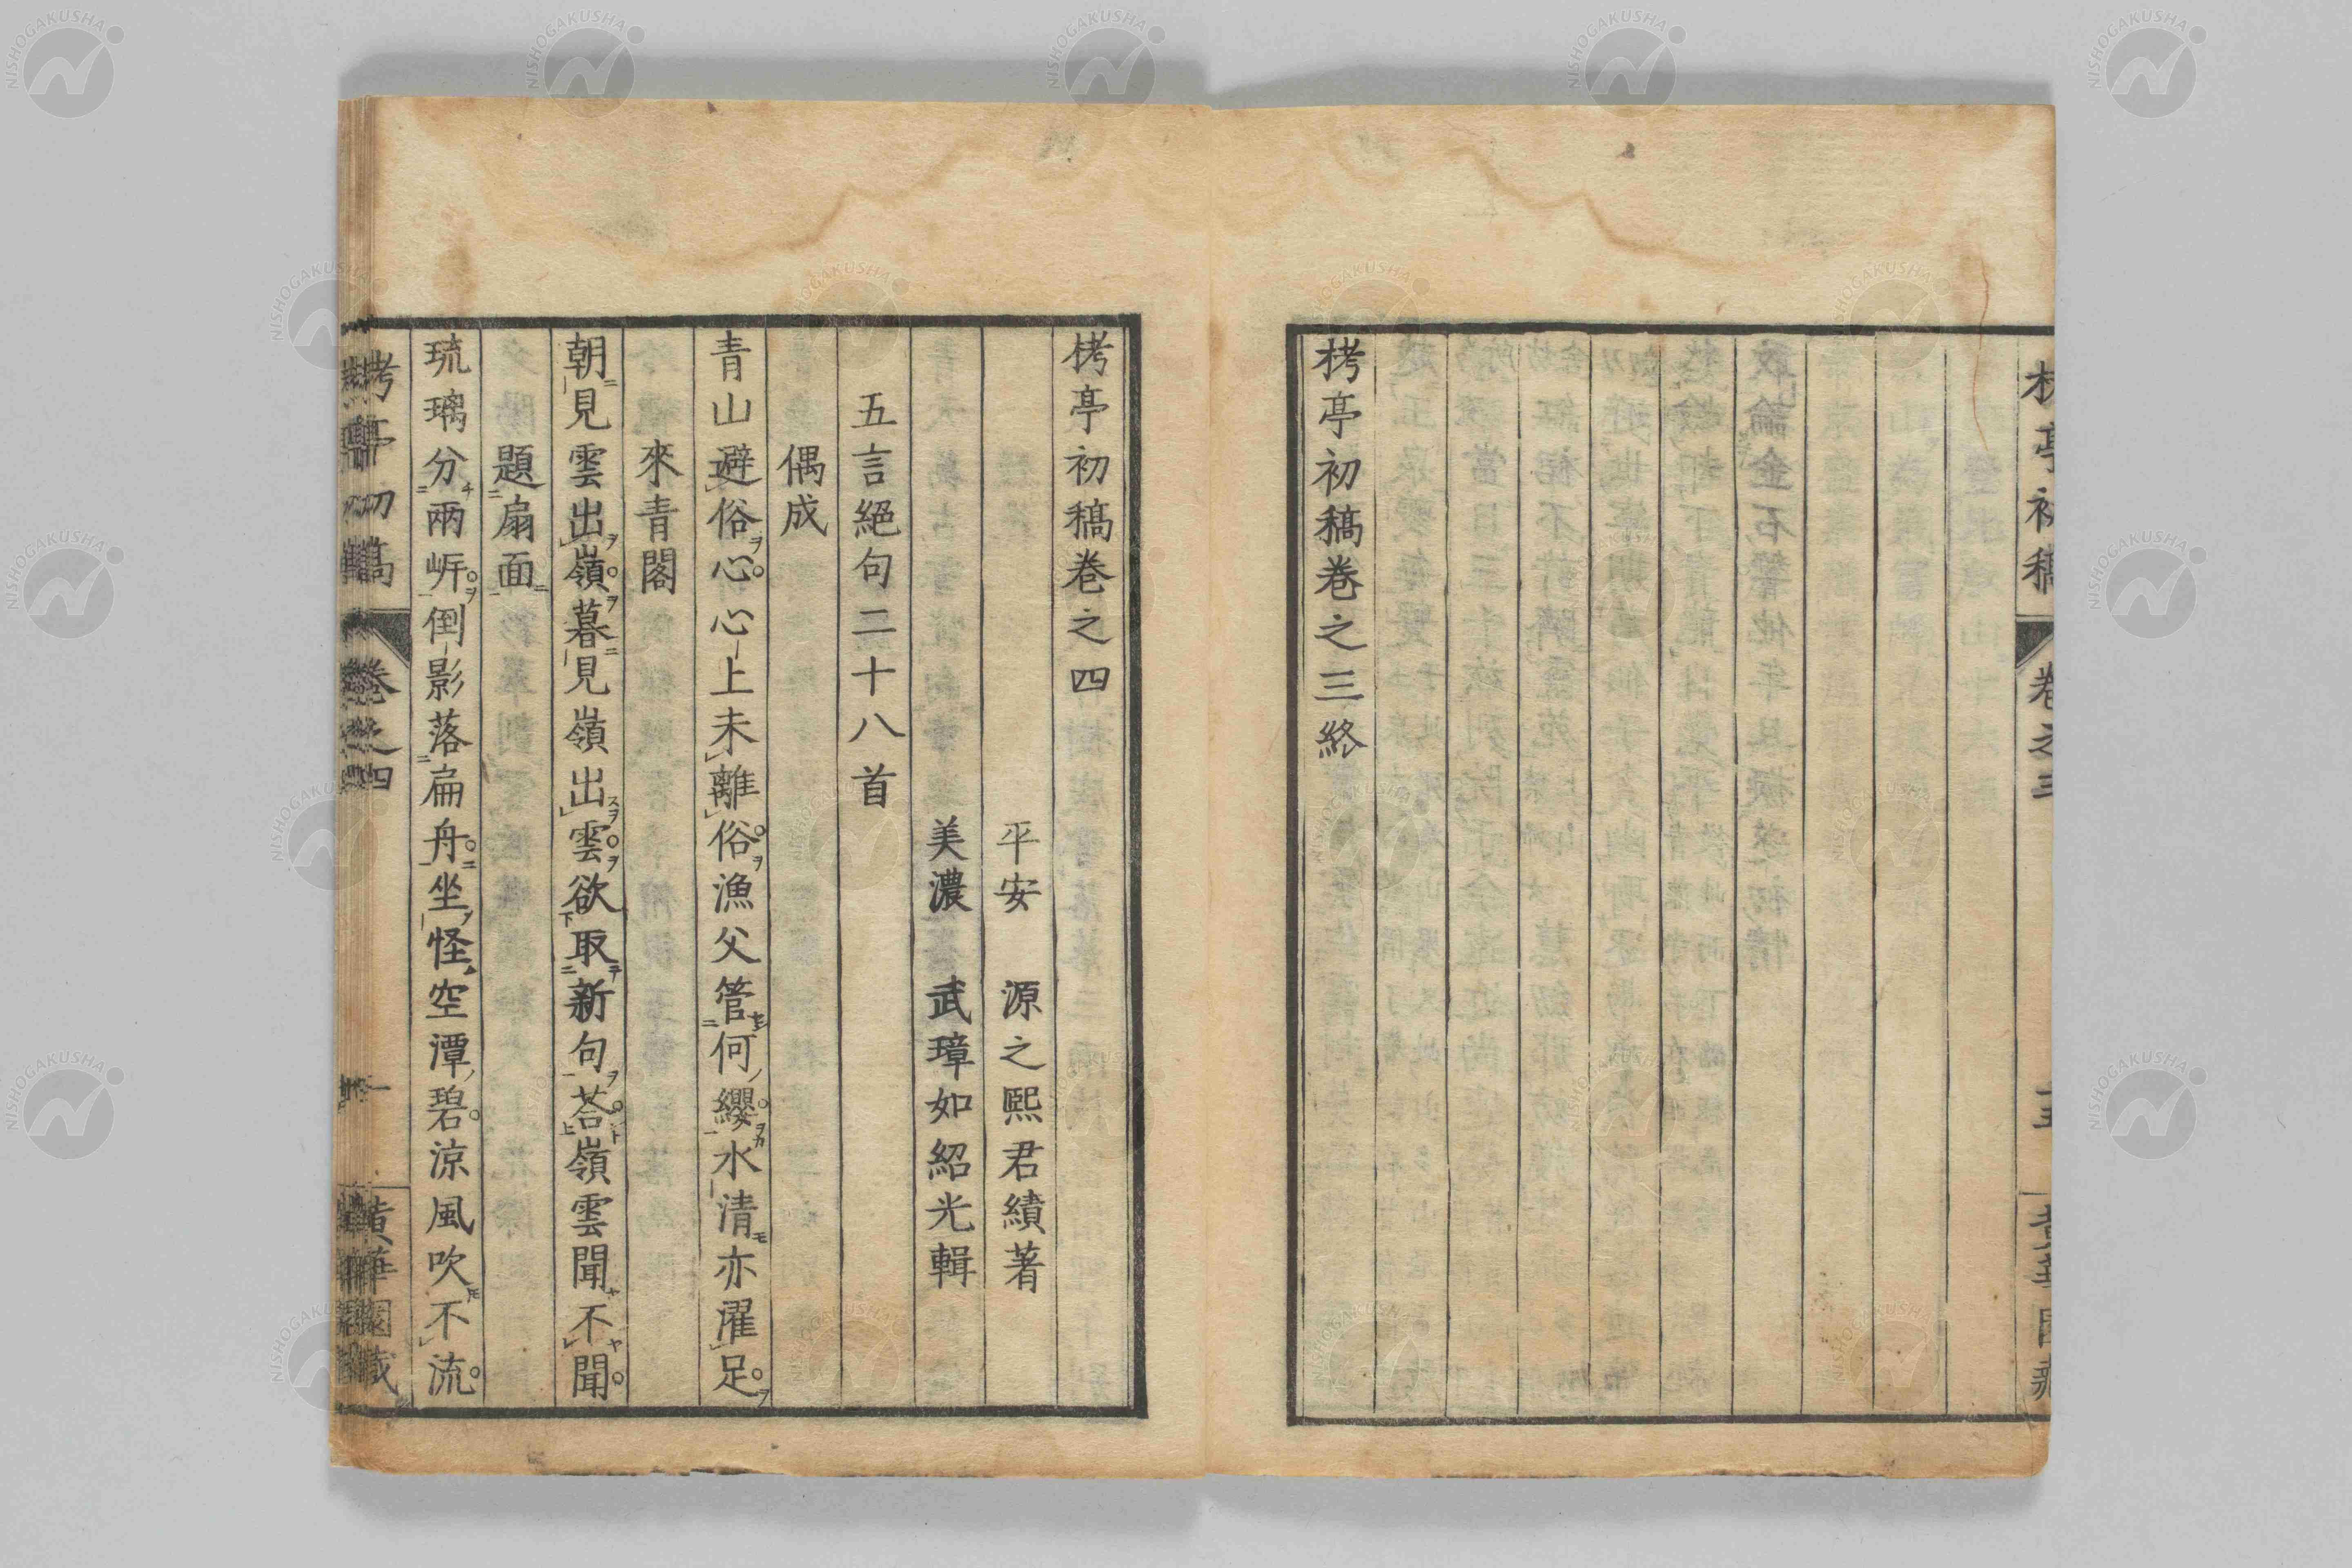 栲亭初稿卷之三終
栲亭初稿卷之四
平安 源之熙君績著
美濃 武璋如紹光輯
五言絕句二十八首
偶成
青山避俗心心上未離俗漁父管何纓水清亦濯足
來青閣
朝見雲出嶺暮見嶺出雲欲取新句荅嶺雲聞不聞
題扇面
琉璃分兩岸倒影落扁舟坐怪空潭碧涼風吹不流
栲亭初稿 卷之四 一 黄華園藏
NISHOGAKUSHA